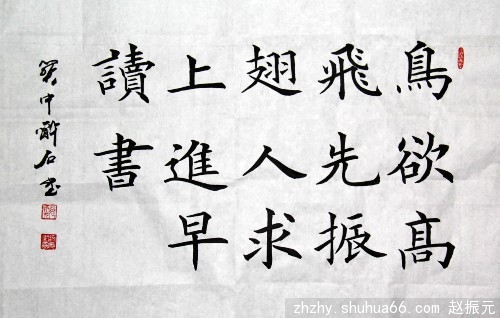 鳥欲髙
飛先振
翅人求
上進早
讀書
中 石
zhzhy.shuhua66.com 赵振元